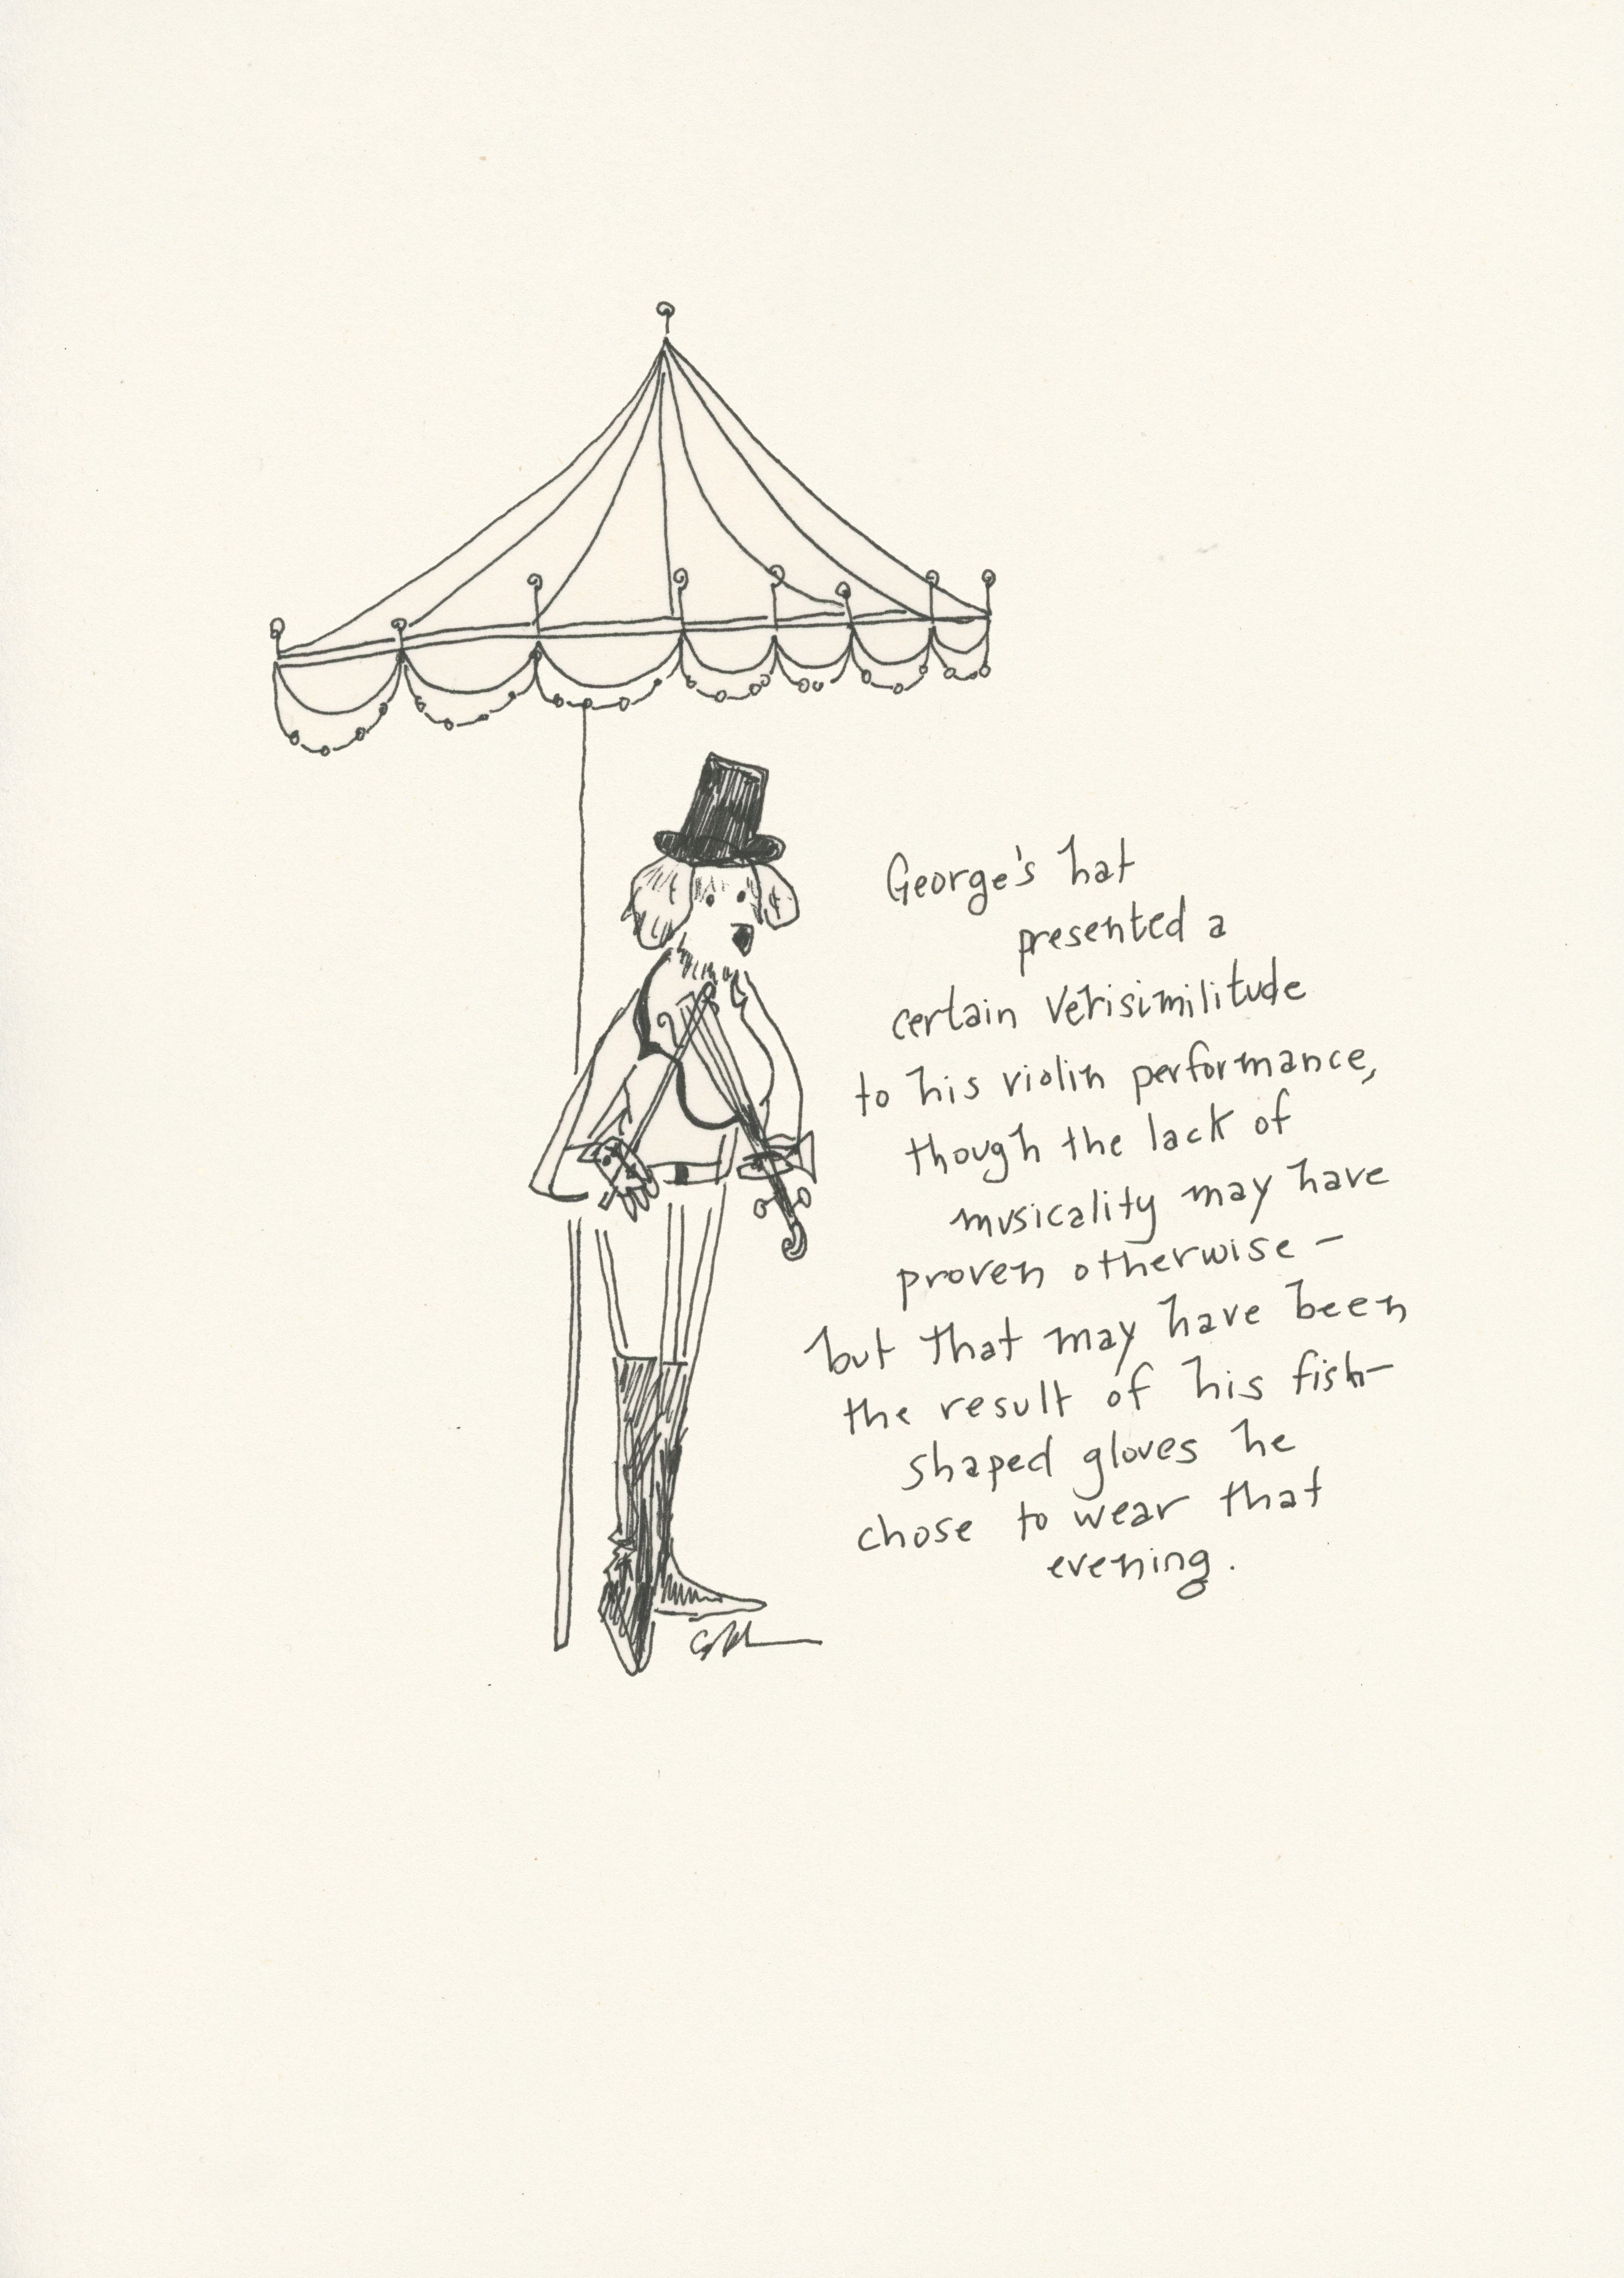 George's hat
presented a
certain verisimilitude
to his violin performance,
though the lack of
musicality may have
proven otherwise –
but that may have been
the result of his fish-
shaped gloves he
chose to wear that
evening.